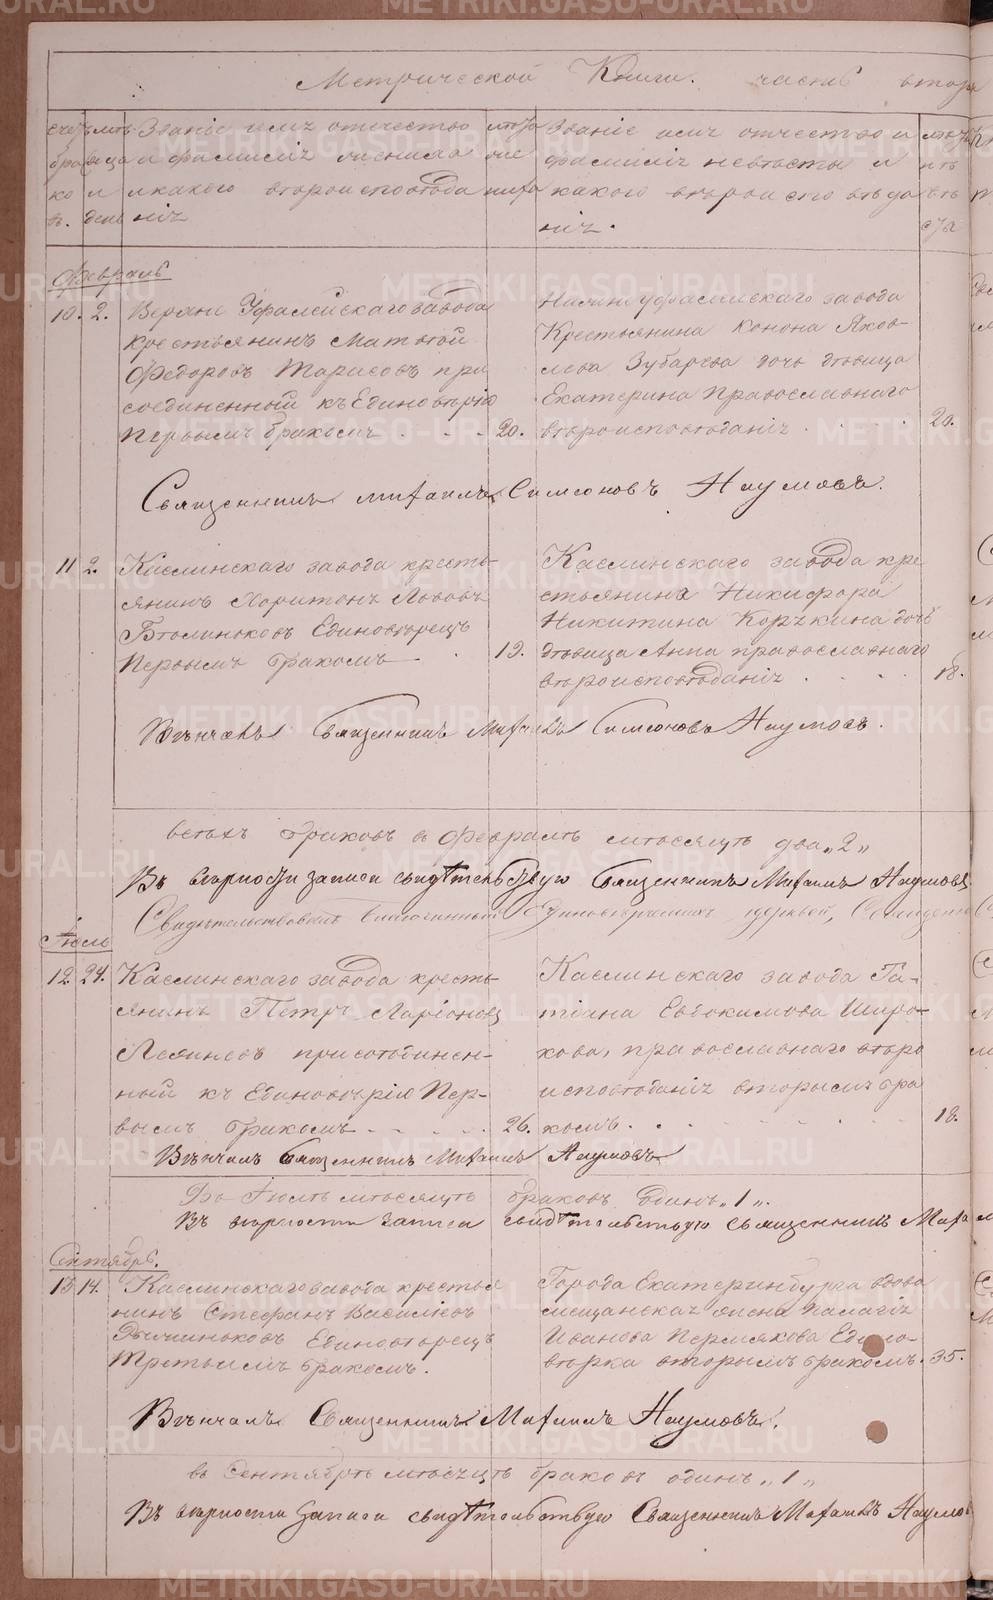 Метрической Книги. часть вторая
Званіе имя отчество
и фамилія жениха
и какого вѣроисповѣда
нія
Званіе имя отчество и
фамилія невѣсты и
какого вѣроисповѣда
нія.
Февраль
10. 2. Верхне Уфалейскаго завода
крестьянинъ Матвей
Федоровъ при
соединенный къ Единовѣрію
Первымъ бракомъ . . . 20.
Нижнеуфалейскаго завода
Крестьянина Конона Яков-
лева Зубарева дочь дѣвица
Екатерина Православнаго
вѣроисповѣданія . . . . 20.
Священникъ Михаилъ Симеоновъ Наумовъ.
11 2. Каслинскаго завода кресть-
янинъ Харитонъ Львовъ
Единовѣрецъ
Первымъ бракомъ . 19.
Каслинскаго завода кре
стьянина Никифора
Никитина дочь
дѣвица Анна православнаго
вѣроисповѣданія . . . . 18.
Вѣнчалъ Священникъ Михаилъ Симеоновъ Наумовъ.
всѣхъ браковъ в Февралѣ мѣсяцѣ два „2„
Въ вѣрности записи свидѣтельствую Священникъ Михаилъ Наумовъ
Единовѣрческихъ церквей, Священно
Іюль
12. 24. Каслинскаго завода кресть-
янинъ Петръ Ларіоновъ
присоединен-
ный къ Единовѣрію Пер-
вымъ бракомъ . . . . 26.
Каслинскаго завода Та-
тіана Евдокимова Широ-
кова, православнаго вѣро
исповѣданія вторымъ бра
комъ. . . . . 18.
Вѣнчалъ Священникъ Михаилъ Наумовъ
Въ Іюлѣ мѣсяцѣ браковъ Одинъ „1„.
Въ вѣрности записи свидѣтельствую Священникъ Миха
Сентябрь.
13 14. Каслинскаго завода крестья
нинъ Стефанъ Василіевъ
Единовѣрецъ
Третьимъ бракомъ.
Города Екатеринбурга вдова
мещанская жена Палагія
Иванова Пермякова Едино-
вѣрка вторымъ бракомъ. 35.
Вѣнчалъ Священникъ Михаилъ Наумовъ.
въ Сентябрѣ мѣсяцѣ браковъ одинъ „1„
Въ вѣрности Записи свидѣтельствую Священникъ Михаилъ Наумов
METRIKI.GASO-URAL.RU